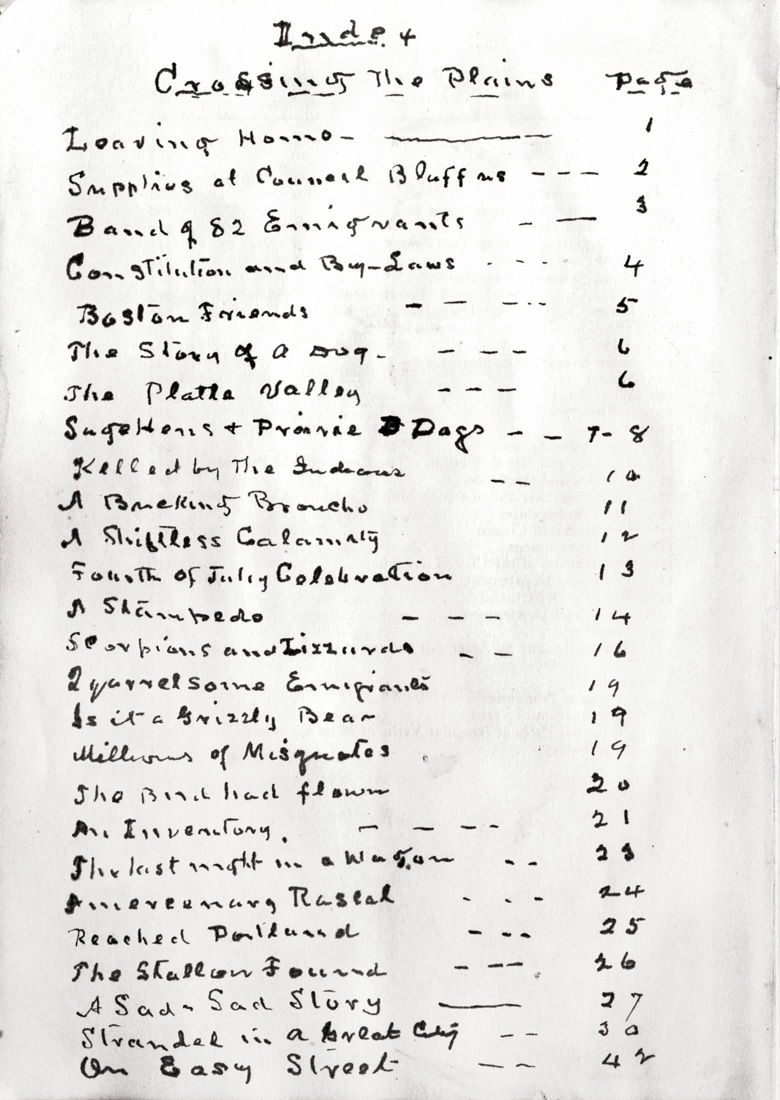 Index
Crossing The Plains Page
Leaving Home - —— 1
Supplies at Council Bluffns --- 2
Band of 82 Emigrants - — 3
Constitution and By-Laws --- 4
Boston Friends - — -·· 5
The Story of A Dog - — -- 6
The Platte Valley --- 6
SageHens & Prairie Dogs - - 7-8
Killed by The Indians -- 10
A Bucking Broncho 11
A Shiftless Calamity 12
Fourth of July Celebration 13
A Stampede - - - 14
Scorpions and Lizzards -- 16
Quarrelsome Emigrants 19
Is it a Grizzly Bear 19
Millions of Misquotes 19
The Bird had flown 20
An Inventory. - - -- 21
The last night in a Wagon -- 23
A mercenary Rascal - - - 24
Reached Portland - -- 25
The Stallion Found - -- 26
A Sad - Sad Story —— 27
Strandel in a Great City -- 30
On Easy Street -- 42